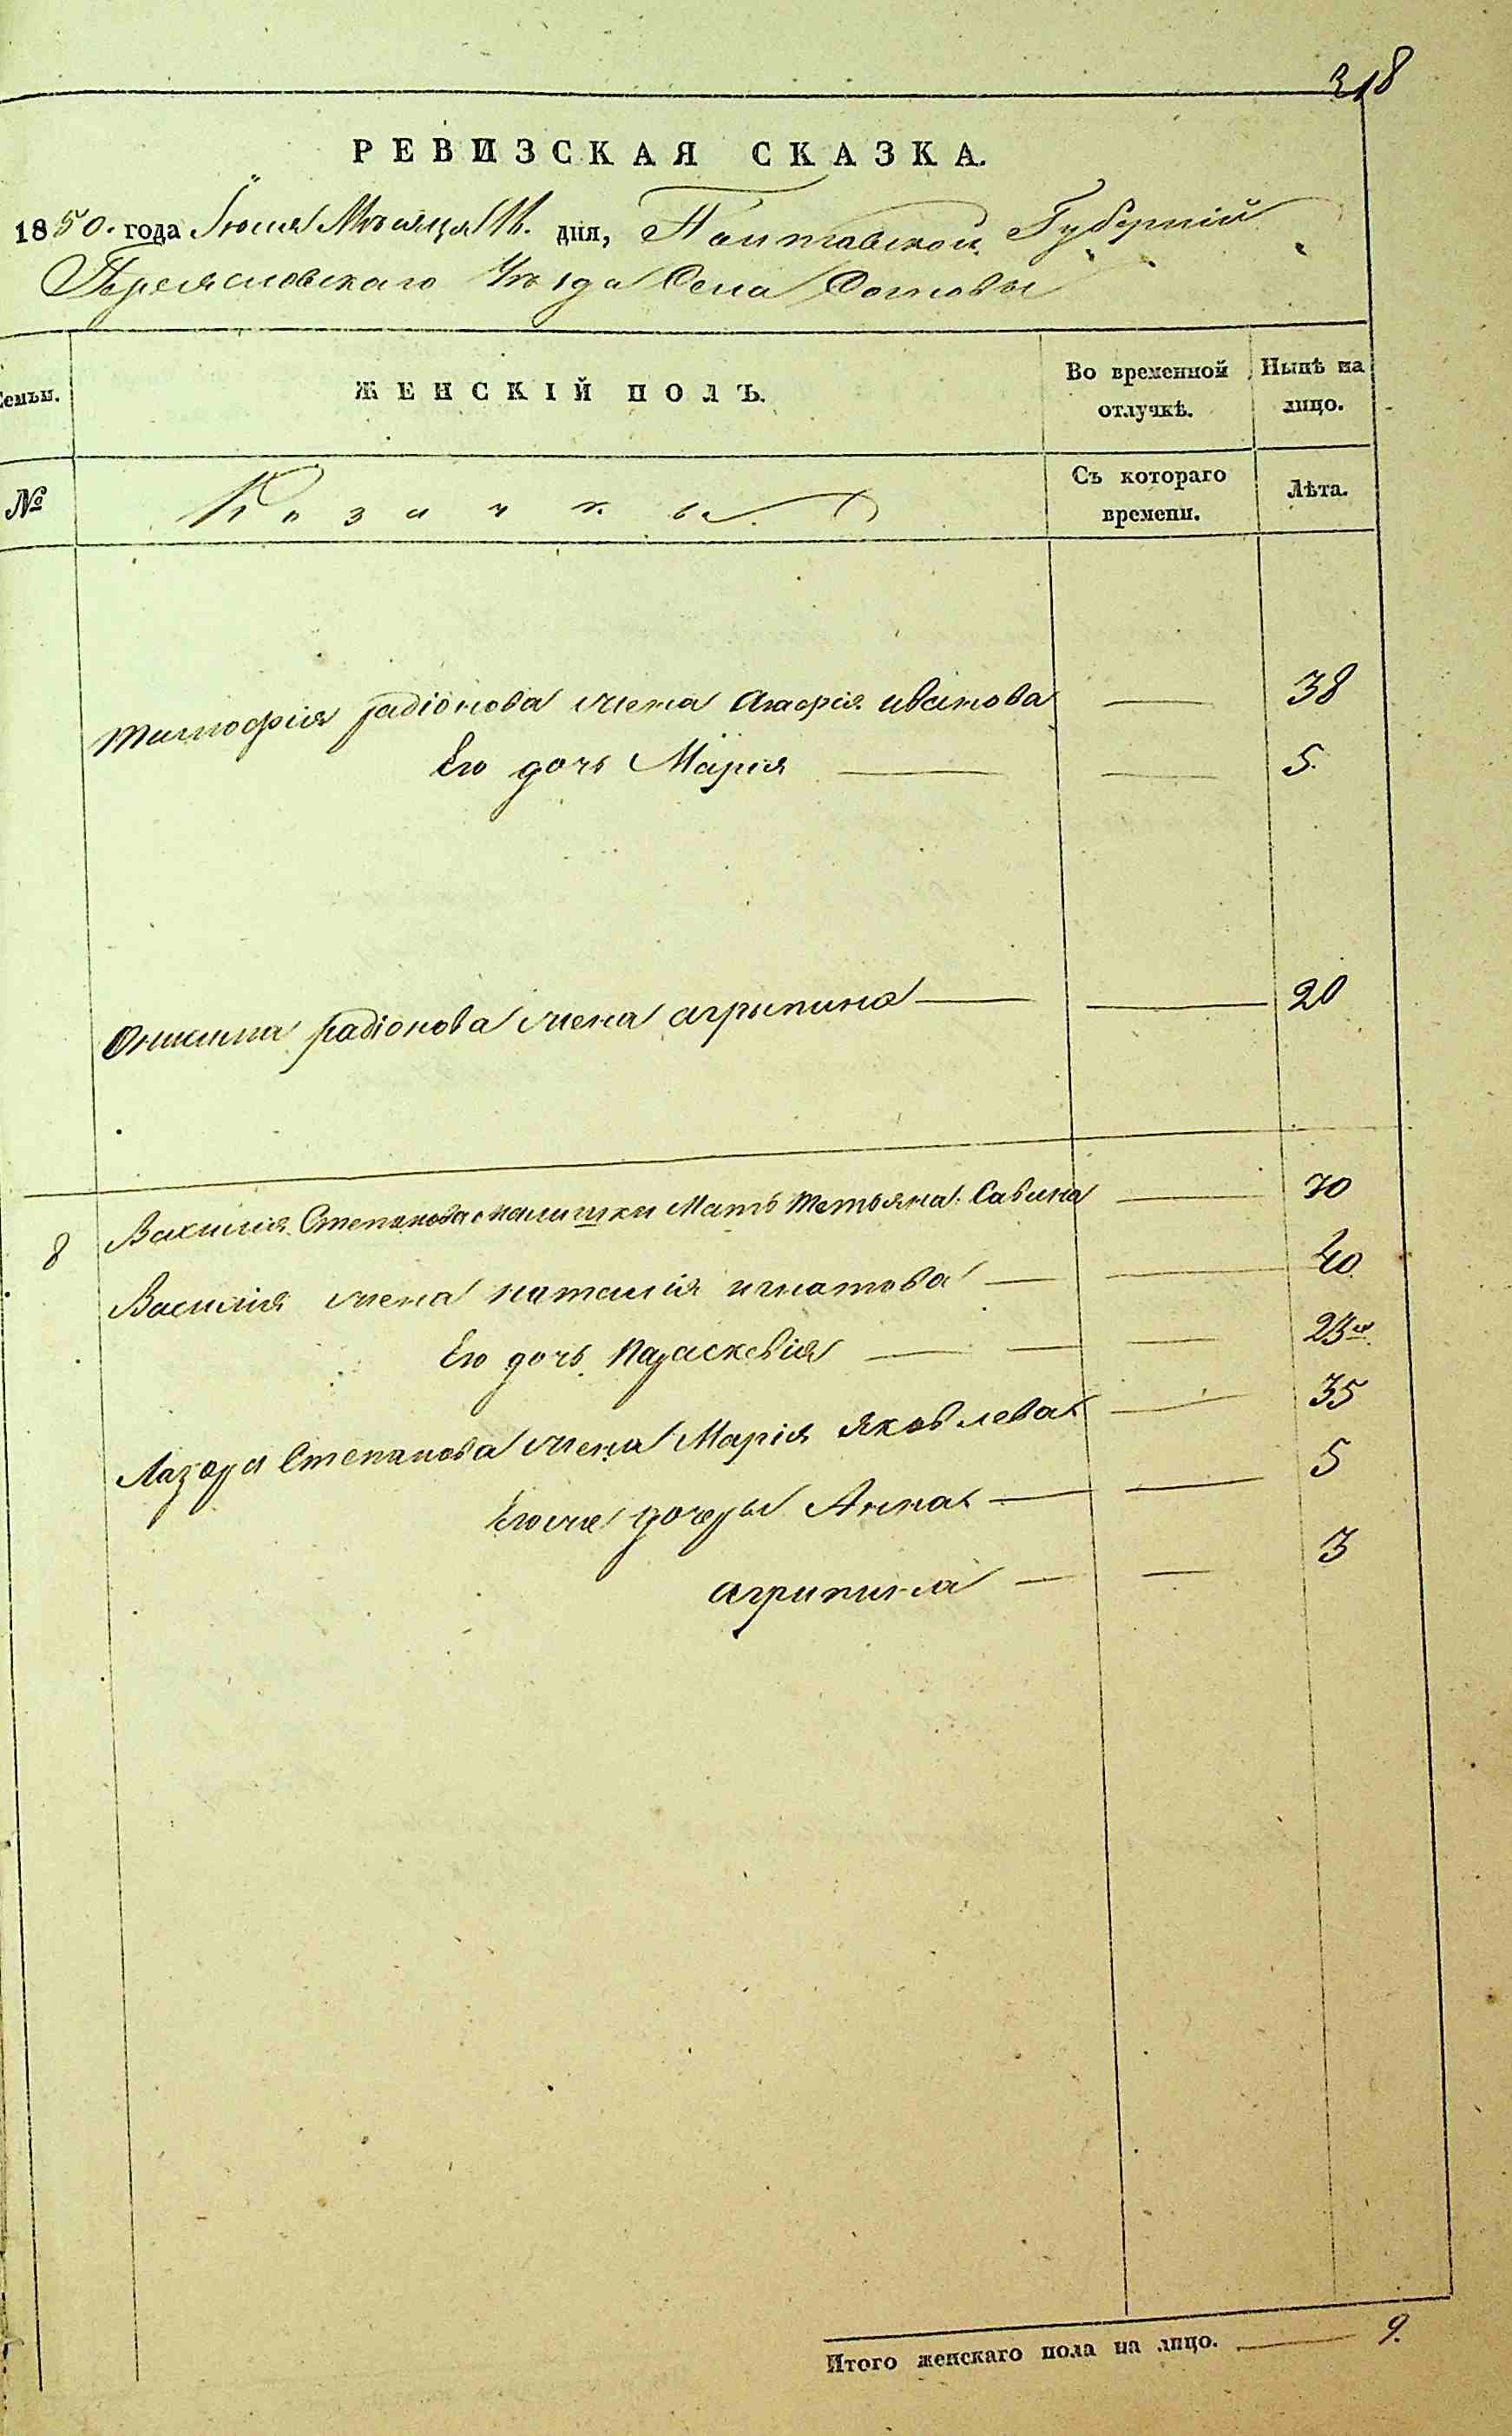 318
РЕВИЗСКАЯ СКАЗКА.
1850. года Июля Мѣсяца дня, Полтавской Губерній
Переясловскаго Уѣзда Села Сошовы
Семьи. ЖЕНСКІЙ ПОЛЪ. Во временной отлучкѣ. Нынѣ на лицо.
№ Козачки Съ котораго времени. Лѣта.
Тимофія радіонова жена Агафія иванова — 38
Его дочь Марія — — 5.
Онисима радіонова жена агрыпина — — 20
8 Василія Степанова Мать Тетьяна Савина — 70
Василія жена наталія игнатова — — 40
Его дочь Параскевія — — — 23
Лазаря Степанова жена Марія яковлева — 35
Егоже дочеры Анна — — 5
агрипина — — 3
Итого женскаго пола на лицо. — 9.